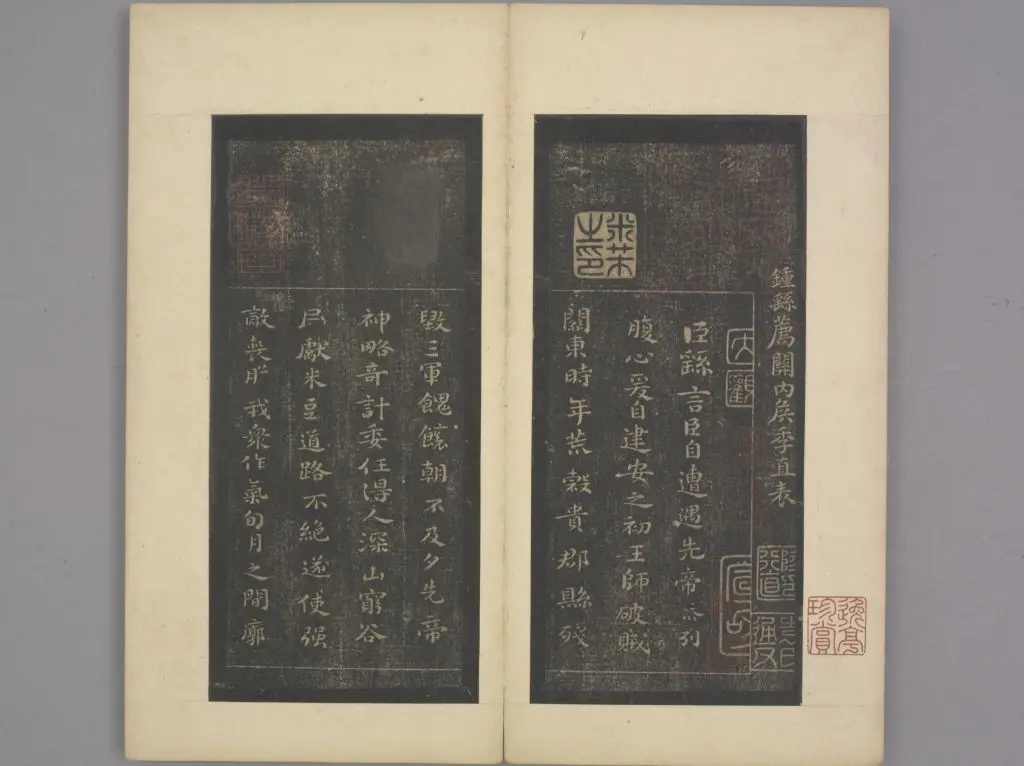 鍾繇薦關內矦季直表
臣繇言臣自遭遇先帝忝列
腹心爰自建安之初王師破賊
關東時年荒穀貴郡縣殘
毀三軍餽饟朝不及夕先帝
神略奇計委任得人深山窮谷
民獻米豆道路不絶遂使强
敵喪膽我衆作氣旬月之間廓
米芾之印
大觀
逸亭珍賞